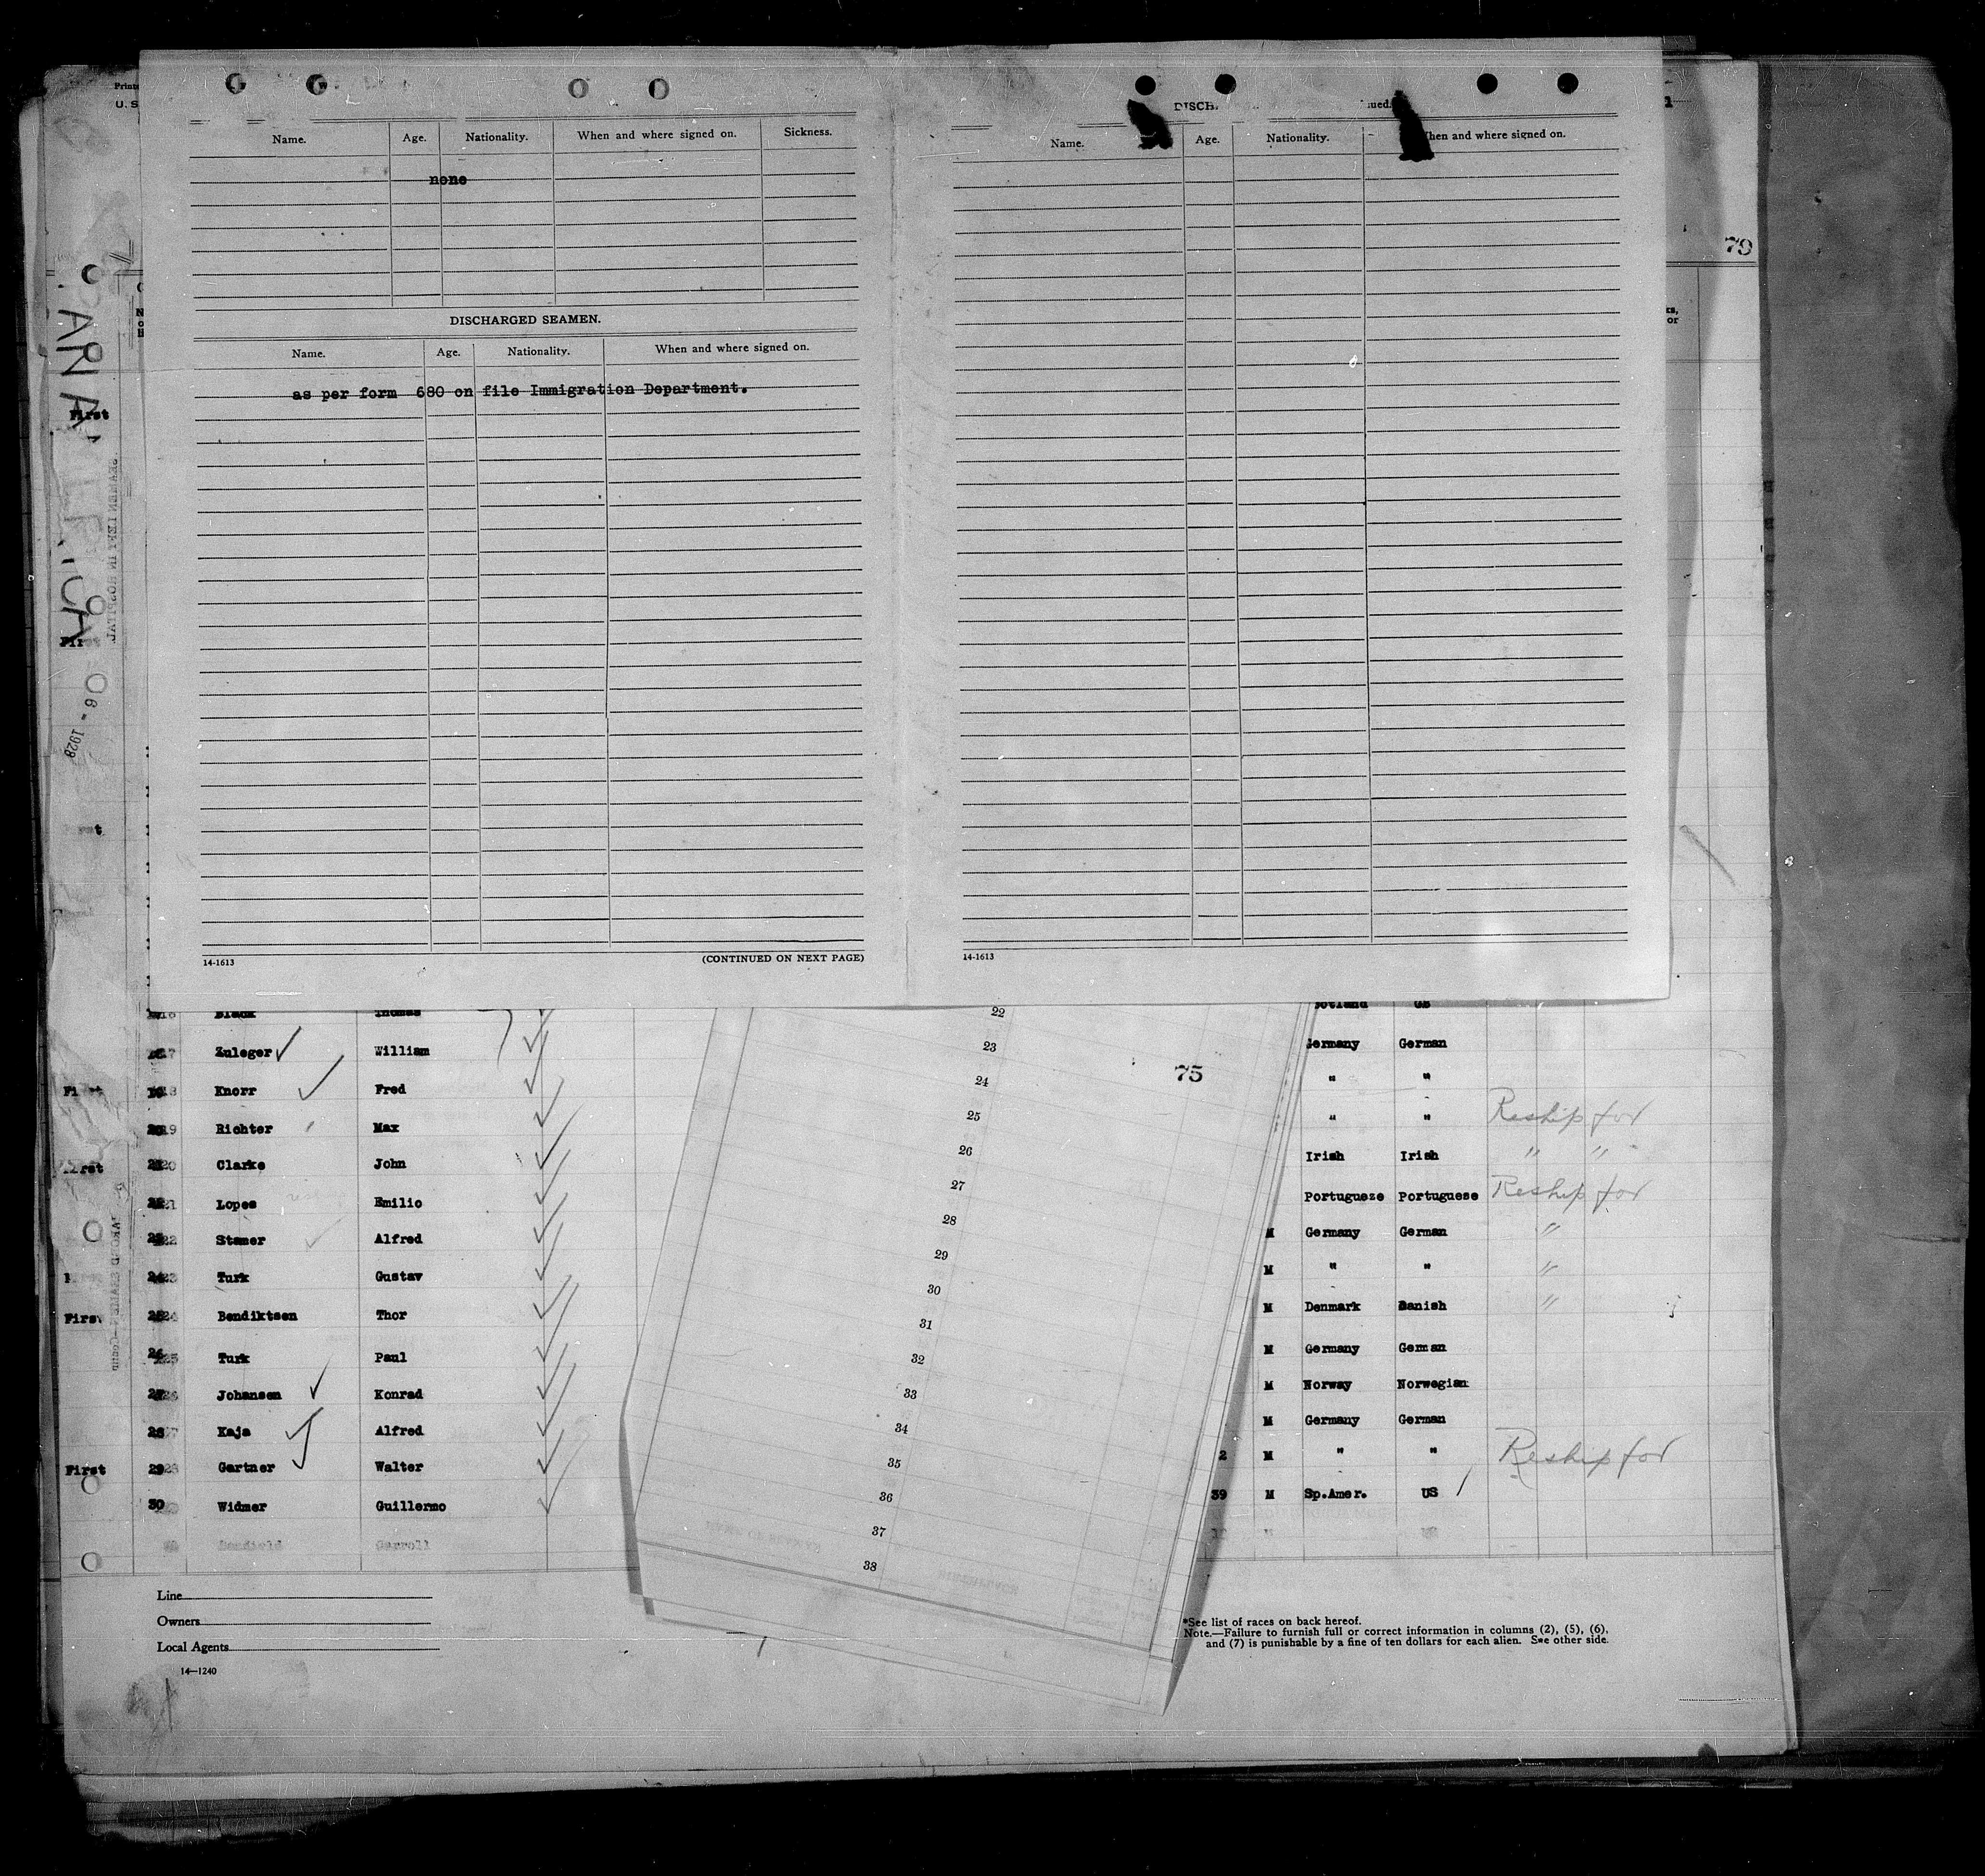 79
Name. Age. Nationality. When and where signed on. Sickness.
none
DISCHARGED SEAMEN.
Name. Age. Nationality. When and where signed on.
as per form 680 on file Immigration Department.
14-1613 (CONTINUED ON NEXT PAGE)
Name. Age. Nationality. When and where signed on.
14-1613
First
1928
Black Thomas Scotland GB
Zuleger William Germany German
First Knorr Fred " "
Richter Max " " Reship for
First 21 Clarke John Irish Irish " "
22 Lopes Emilio Portugueze Portuguese Reship for
23 Stamer Alfred M Germany German "
24 Turk Gustav M " " "
First 25 Bendiktsen Thor M Denmark Danish "
26 Turk Paul M Germany German
27 Johansen Konrad M Norway Norwegian
28 Kaja Alfred M Germany German
First 29 Gartner Walter 2 M " " Reship for
30 Widmer Guillermo 39 M Sp.Amer. US
Carroll
22
23
75
24
25
26
27
28
29
30
31
32
33
34
35
36
37
38
Line
Owners
Local Agents
14—1240
*See list of races on back hereof.
Note.—Failure to furnish full or correct information in columns (2), (5), (6),
and (7) is punishable by a fine of ten dollars for each alien. See other side.